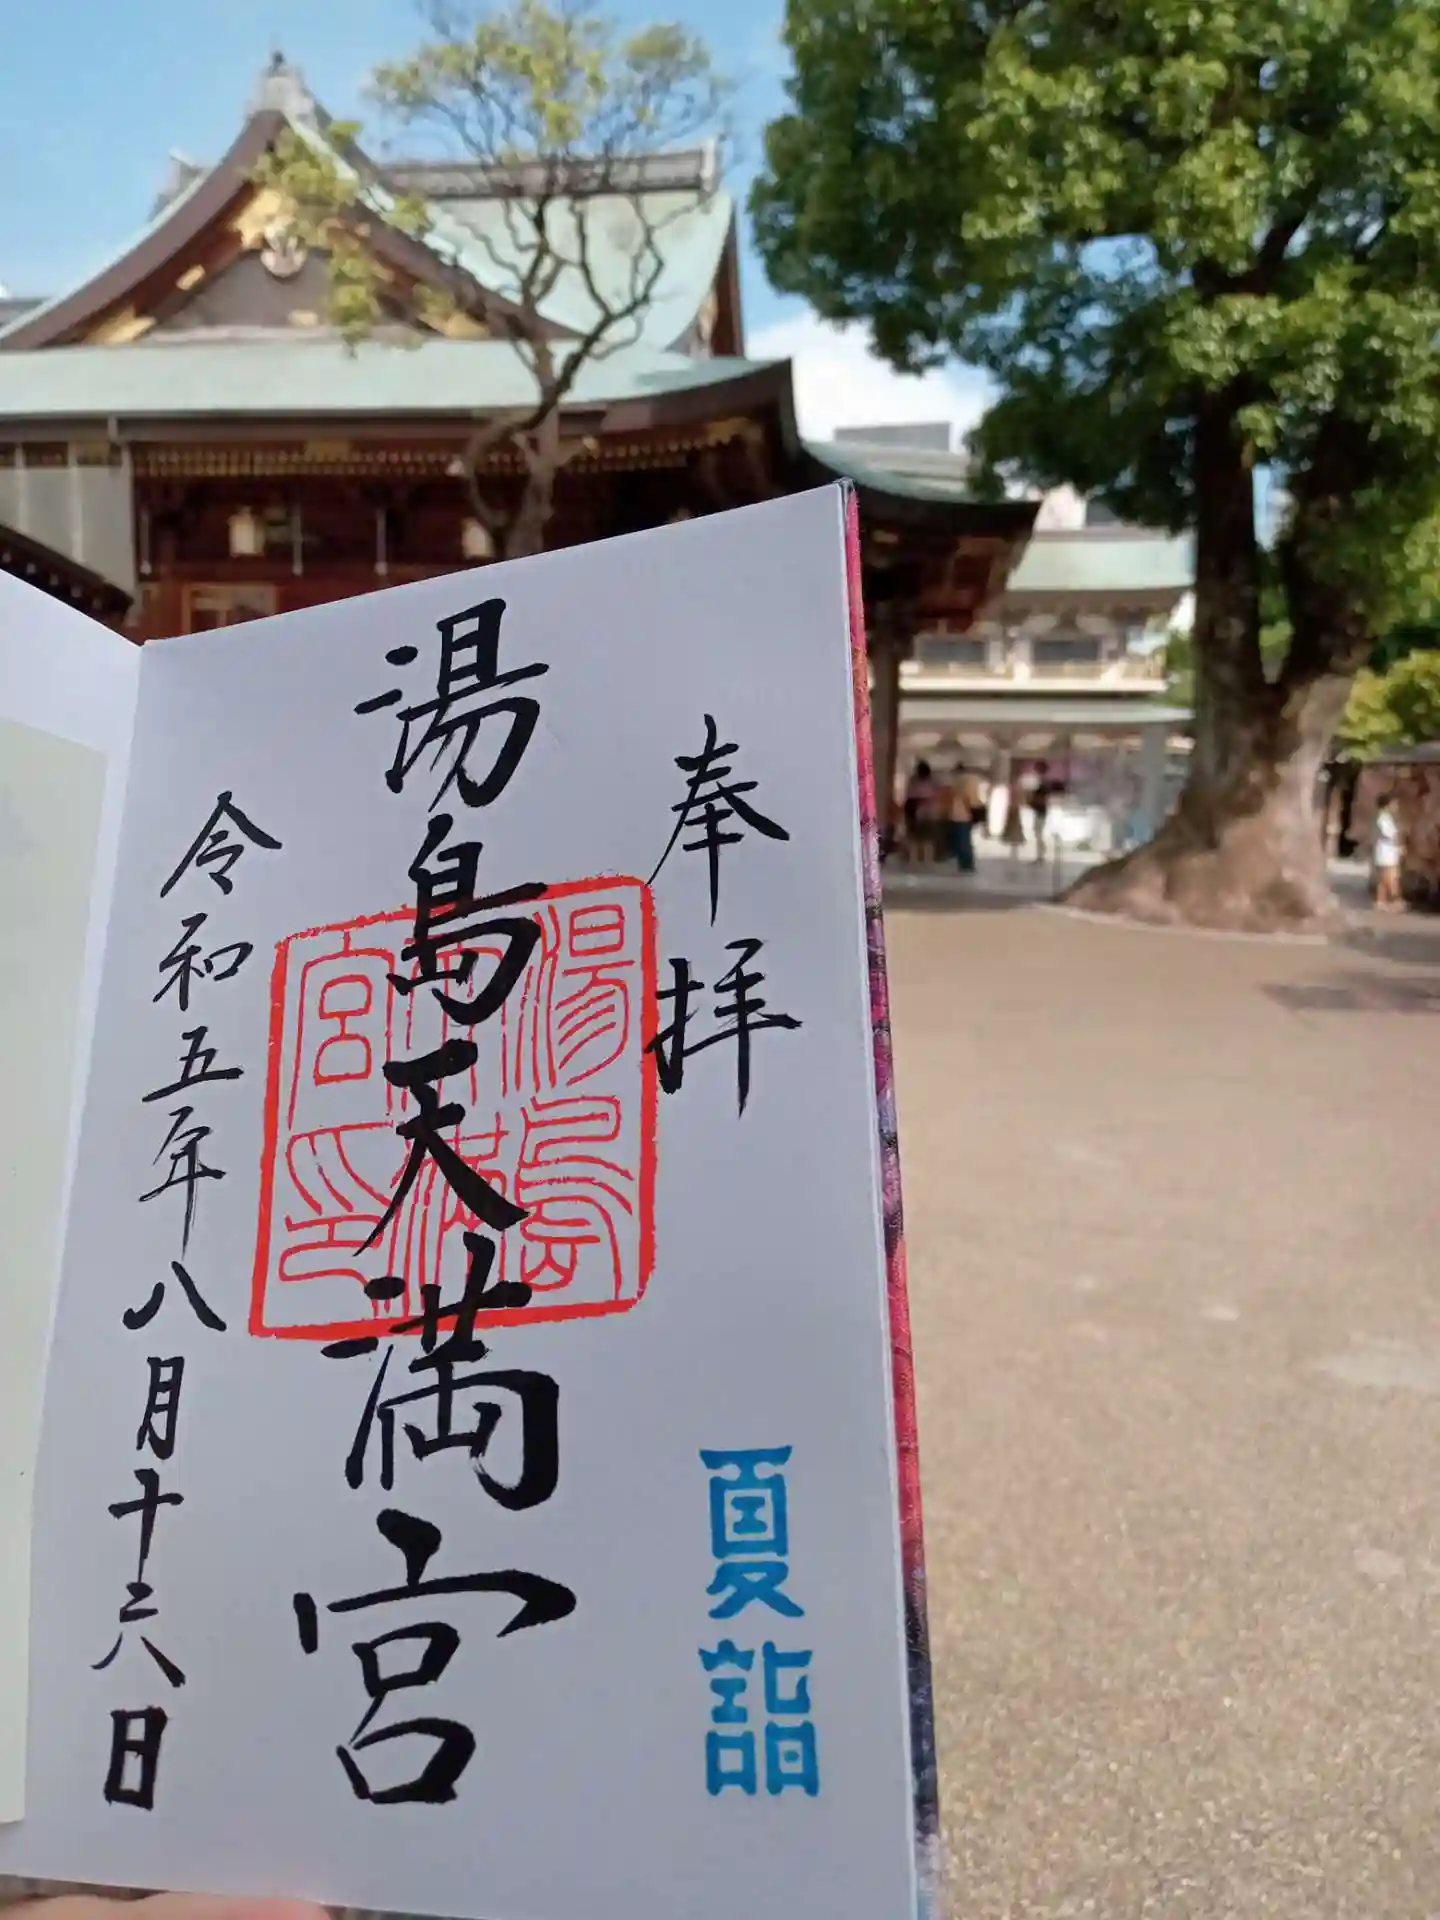 奉拝
湯島天満宮
令和五年八月十六日
湯島天満宮印
夏詣